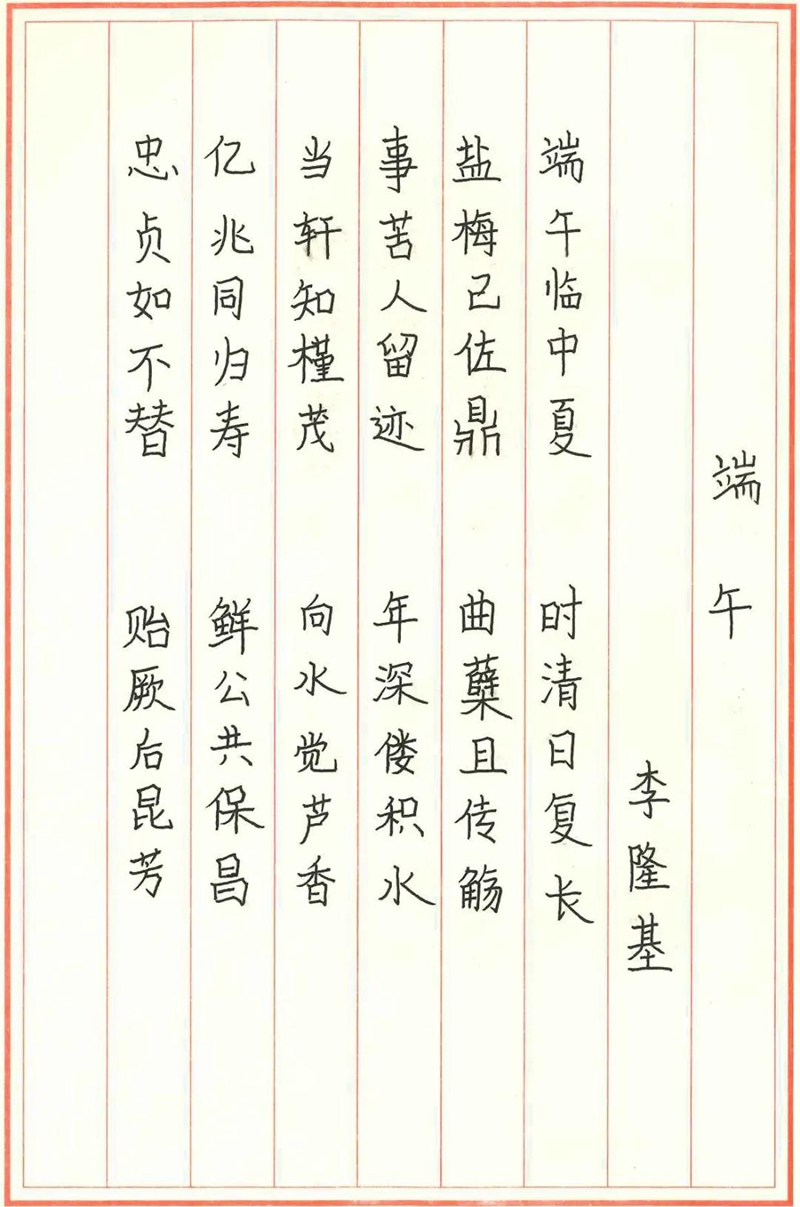 端午
李隆基
端午临中夏 时清日复长
盐梅已佐鼎 曲糵且传觞
事苦人留迹 年深偻积水
当轩知槿茂 向水觉芦香
亿兆同归寿 鲜公共保昌
忠贞如不替 贻厥后昆芳